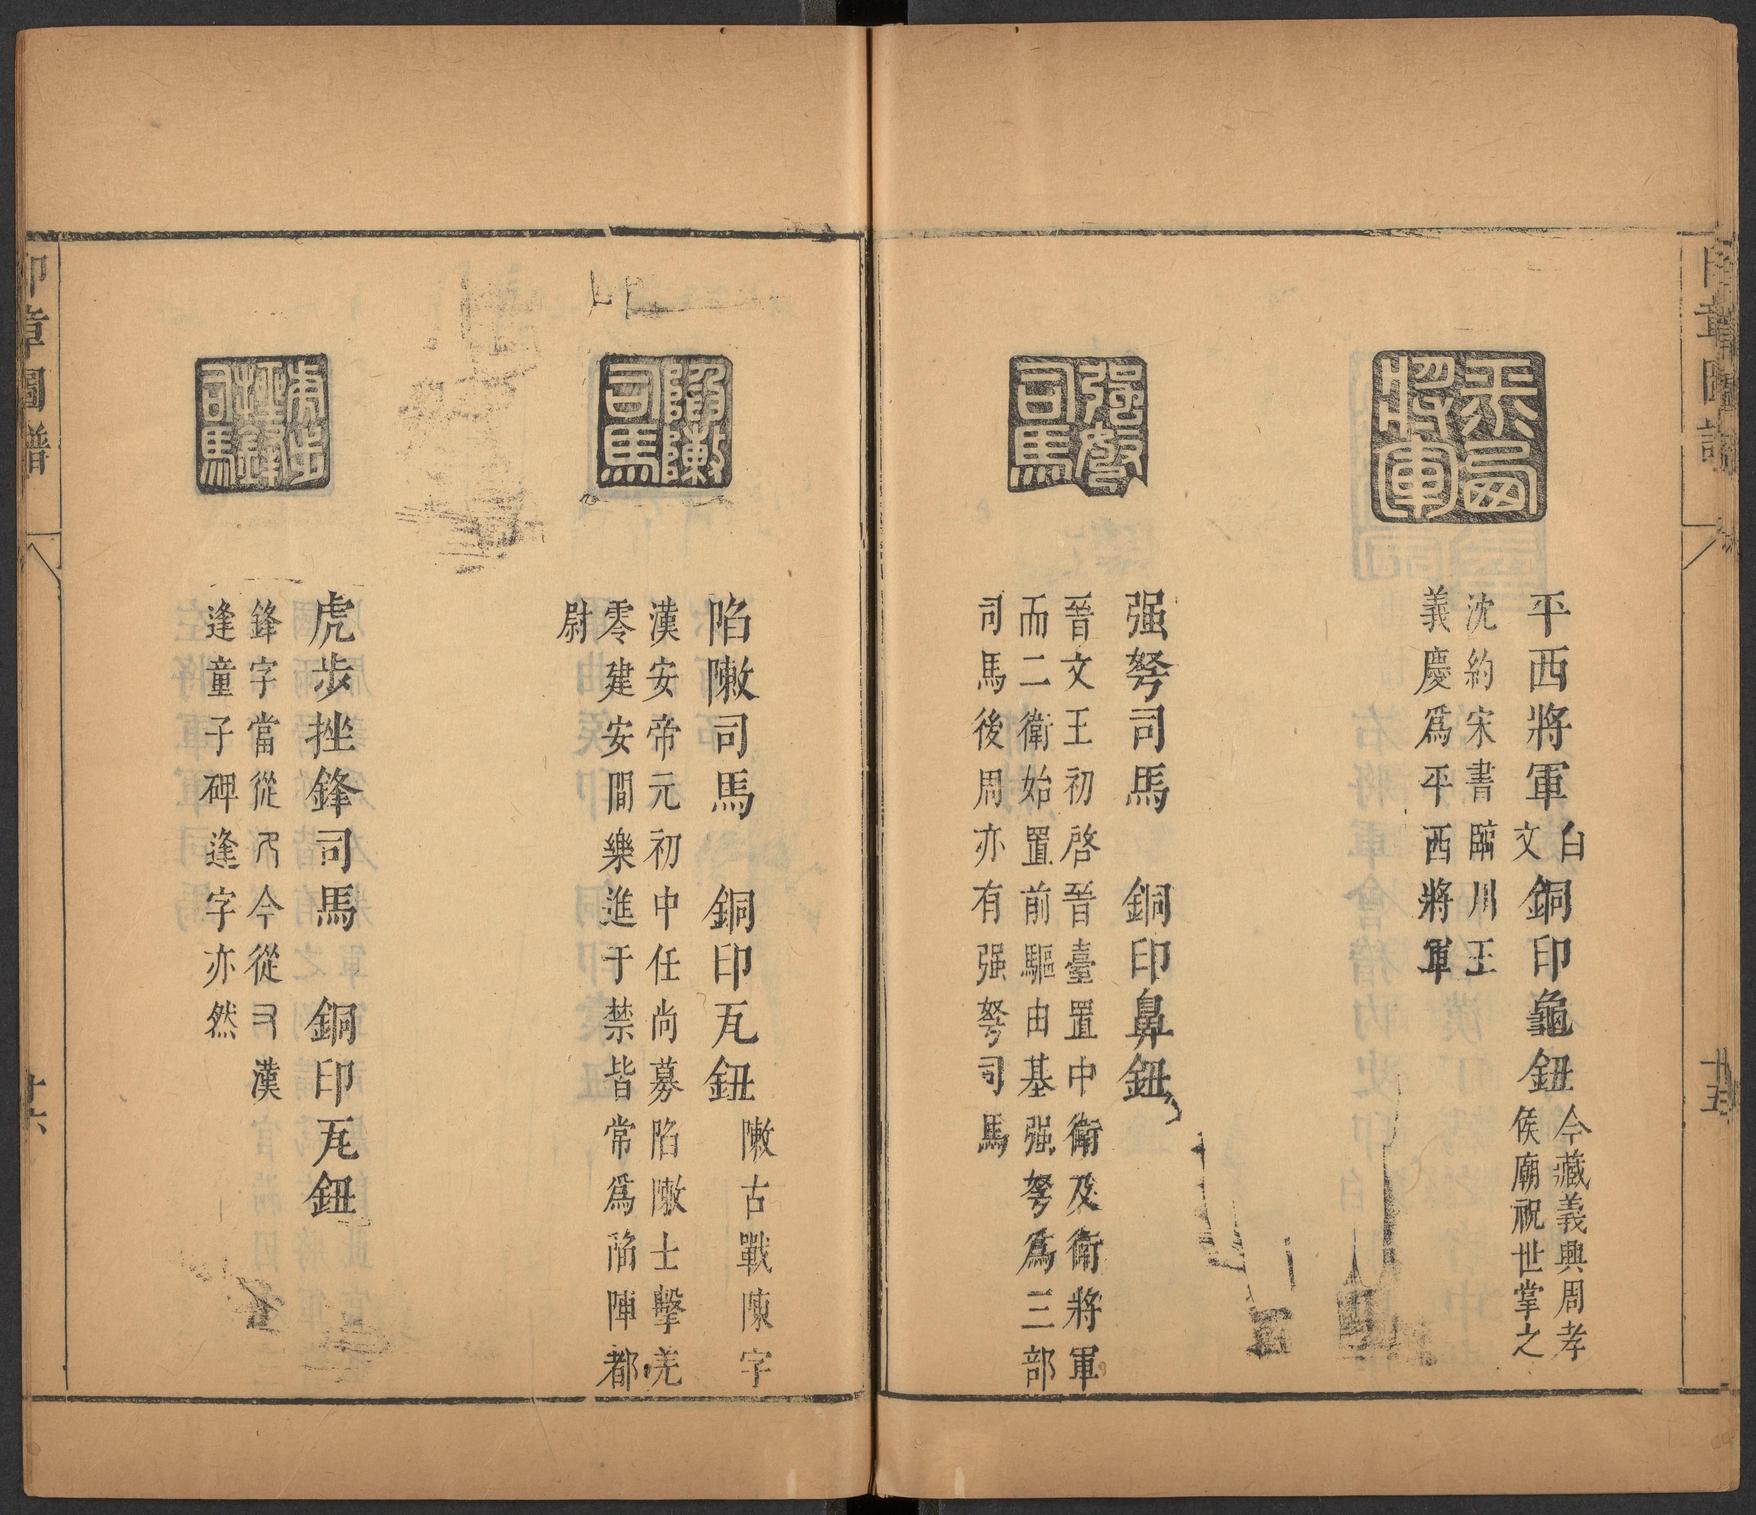 平西將軍
平西將軍 白文 銅印龜鈕 今藏義興周孝侯廟祝世掌之
沈約宋書臨川王
義慶爲平西將軍
强弩司馬
强弩司馬 銅印鼻鈕
晉文王初啓晉臺置中衛及衛將軍
而二衛始置前驅由基强弩爲三部
司馬後周亦有强弩司馬
十五
陷敶司馬
陷敶司馬 銅印瓦鈕 敶古戰陳字
漢安帝元初中任尚募陷敶士擊羌
零建安間樂進于禁皆常爲陷陣都
尉
虎步挫鋒司馬
虎步挫鋒司馬 銅印瓦鈕
鋒字當從今從漢
逢童子碑逢字亦然
印章圖譜
十六